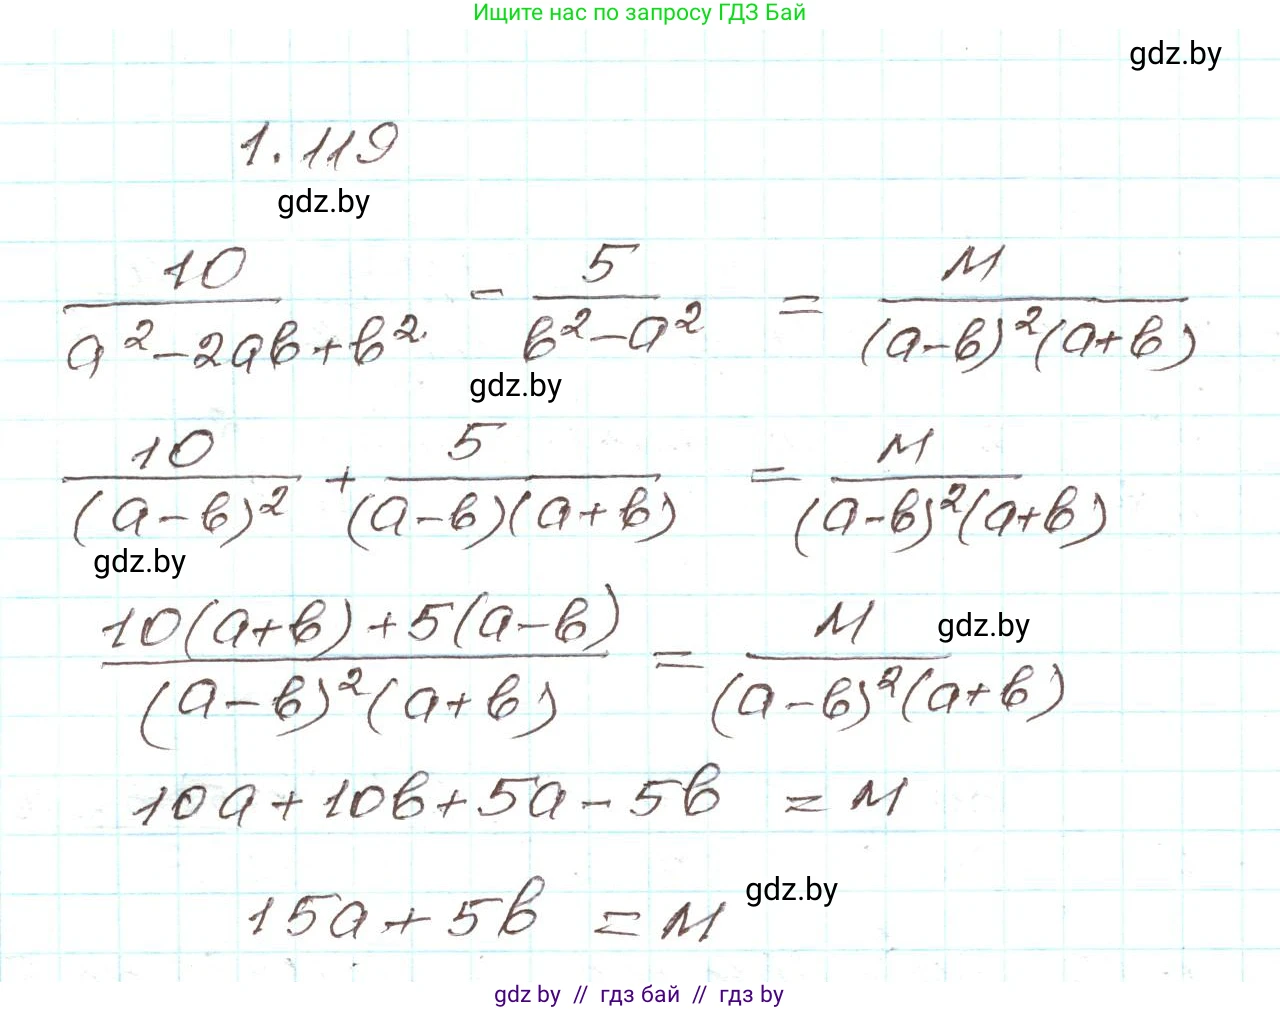 Ищите нас по запросу ГДЗ Бай
gdz.by
1.119
gdz.by
10/(a²-2ab+b²) - 5/(b²-a²) = M/((a-b)²(a+b))
gdz.by
10/(a-b)² + 5/((a-b)(a+b)) = M/((a-b)²(a+b))
gdz.by
(10(a+b)+5(a-b))/((a-b)²(a+b)) = M/((a-b)²(a+b))
gdz.by
10a+10b+5a-5b = M
15a+5b = M
gdz.by
gdz by // гдз бай // гдз by